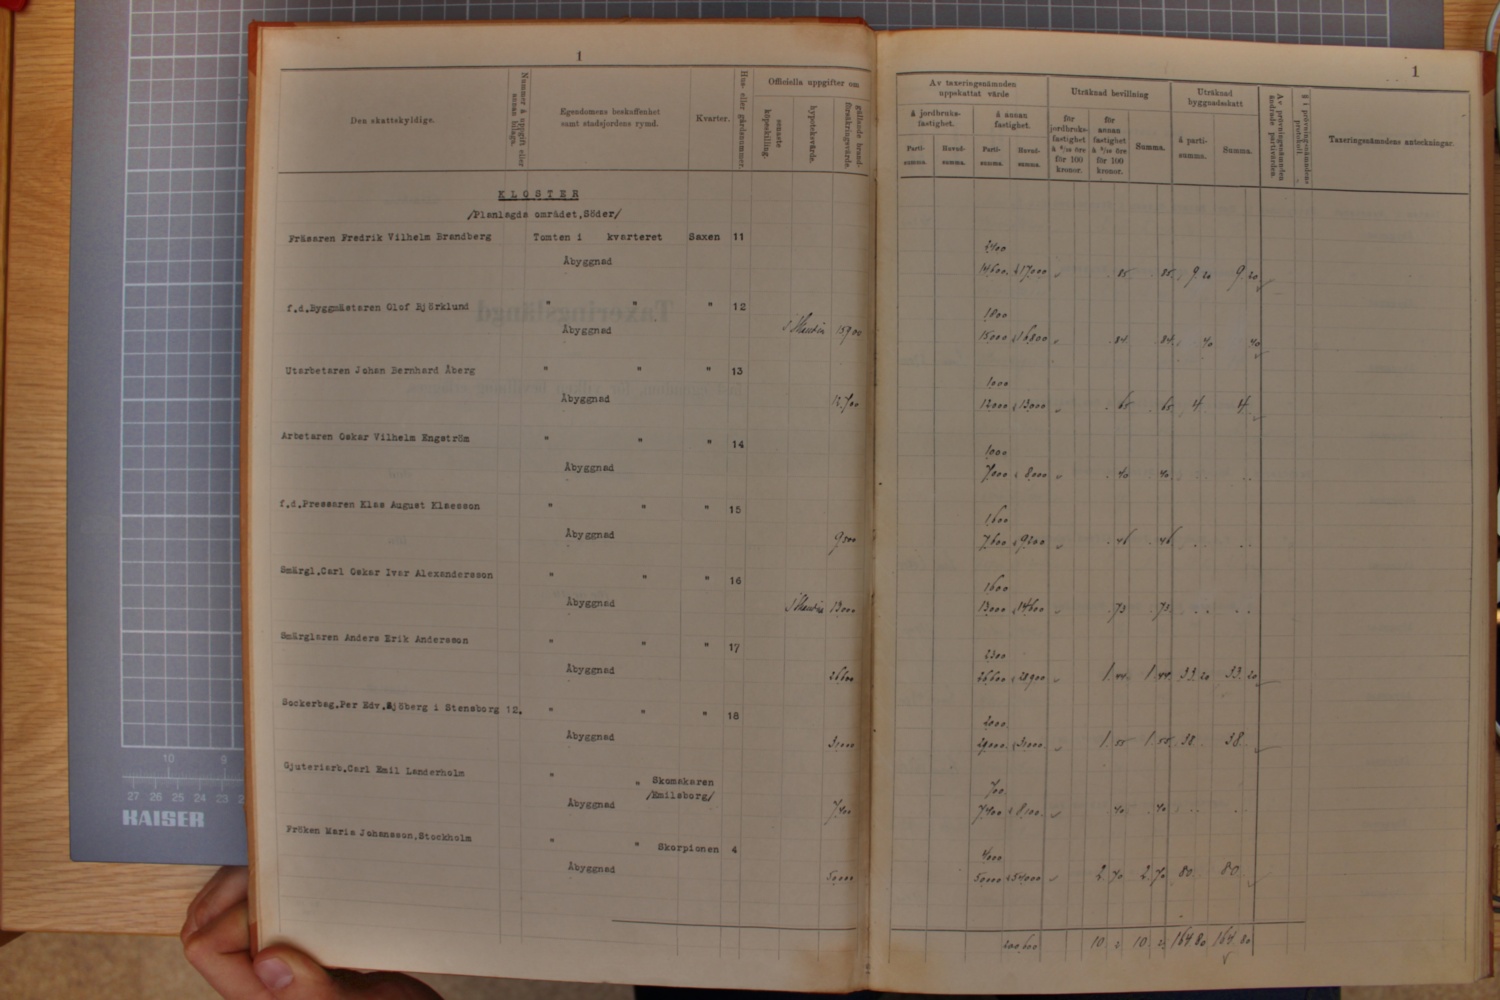 1
Den skattskyldige.
Nummer å uppgift eller annan bilaga.
Egendomens beskaffenhet samt stadsjordens rymd.
Kvarter.
Hus- eller gårdsnummer.
Officiella uppgifter om
senaste köpeskilling.
hypoteksvärde.
gällande brandförsäkringsvärde.
KLOSTER
/Planlagda området,Söder/
Fräsaren Fredrik Vilhelm Brandberg Tomten i kvarteret Saxen 11
Åbyggnad
f.d.Byggmästaren Olof Björklund " " " 12
Åbyggnad 15900
Utarbetaren Johan Bernhard Åberg " " " 13
Åbyggnad 12700
Arbetaren Oskar Vilhelm Engström " " " 14
Åbyggnad
f.d.Pressaren Klas August Klaesson " " " 15
Åbyggnad 9500
Smärgl.Carl Oskar Ivar Alexandersson " " " 16
Åbyggnad 13000
Smärglaren Anders Erik Andersson " " " 17
Åbyggnad 26600
Sockerbag.Per Edv.Sjöberg i Stensborg 12. " " " 18
Åbyggnad 31000
Gjuteriarb.Carl Emil Landerholm " " Skomakaren
/Emilsborg/
Åbyggnad 7400
Fröken Maria Johansson,Stockholm " " Skorpionen 4
Åbyggnad 50000
1
Av taxeringsnämnden uppskattat värde
å jordbruksfastighet.
å annan fastighet.
Partisumma.
Huvudsumma.
Partisumma.
Huvudsumma.
Uträknad bevillning
för jordbruksfastighet
för annan fastighet
Summa.
Uträknad byggnadsskatt
å partisumma.
Summa.
Av prövningsnämnden ändrade partivärden.
§ i prövningsnämndens protokoll.
Taxeringsnämndens anteckningar.
2400
14600 17000 85 85 9 20 9 20
1800
15000 16800 84 84 40 40
1000
12000 13000 65 65 4 4
1000
7000 8000 40 40
1600
7600 9200 46 46
1600
13000 14600 73 73
2300
26600 28900 1 44 1 44 33 20 33 20
2000
29000 31000 1 55 1 55 38 38
700
7400 8100 40 40
4000
50000 54000 2 70 2 70 80 80
200600 10 2 10 2 164 80 164 80
10 9
27 26 25 24 23 2
KAISER